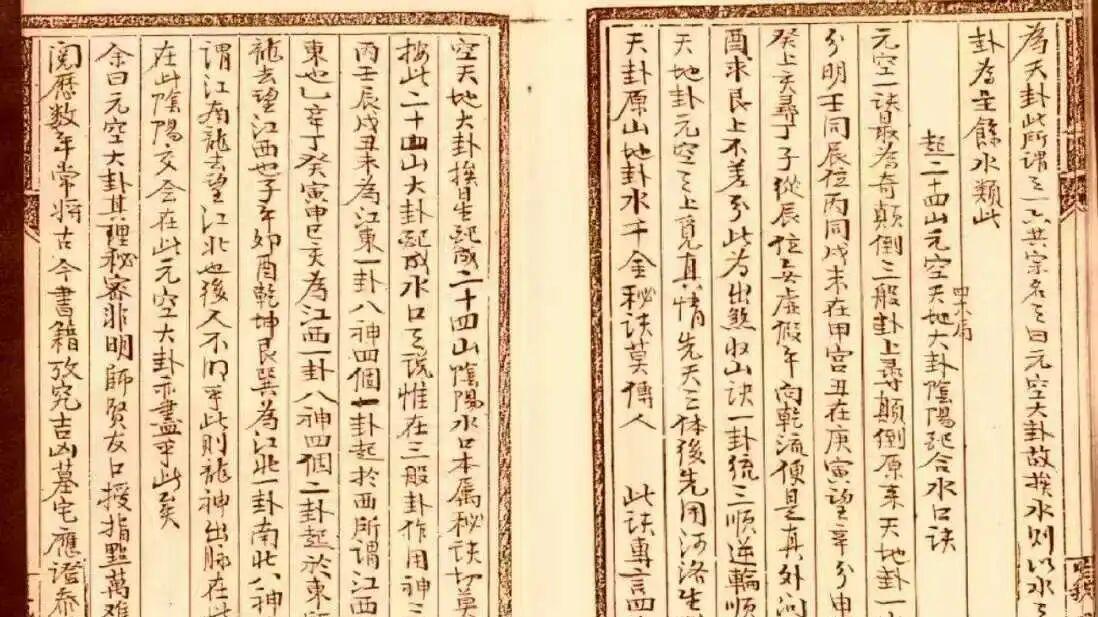 為天卦此所謂一六共宗名之曰元空大卦故挨水則以水之
卦為主餘水類此
起二十四山元空天地大卦陰陽配合水口訣
元空一訣最為奇顛倒三般卦上尋顛倒原來天地卦一
分明壬同辰位丙同戌未在甲宮丑在庚寅望辛分申
癸上亥尋丁子從辰位無虛假午向乾流便是真外問
酉求艮上不差分此為出煞收山訣一卦統三順逆輪順
天地卦元空之上覓真情先天三体後先用河洛生
天卦原山地卦水千金秘訣莫傳人 此訣專言四
空天地大卦挨星配成二十四山陰陽水口本屬秘訣切莫
按此二十四山大卦配成水口之說惟在三般卦作用神三
丙壬辰戌丑未為江東一卦八神四個一卦起於西所謂江西
東也乙辛丁癸寅申巳亥為江西一卦八神四個二卦起於東
龍去望江西也子午卯酉乾坤艮巽為江北一卦南北八神
謂江南龍去望江北也後人不明乎此則龍神出脉在此
在此陰陽交會在此元空大卦亦盡乎此矣
余曰元空大卦其理秘密非明師賢友口授指點萬難
閱歷數年常將古今書籍攷究吉凶墓宅應證